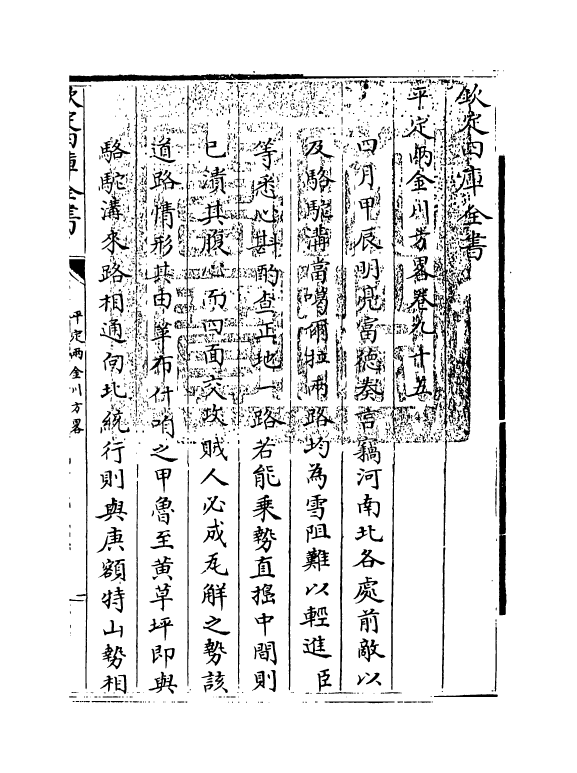 欽定四庫全書
平定兩金川方畧卷九十五
四月甲辰明亮富德奏言竊河南北各處前敵以
及駱駝溝當噶爾拉兩路均為雪阻難以輕進臣
等悉心斟酌查正地一路若能乘勢直搗中間則
已潰其腹心而四面交攻賊人必成瓦解之勢該
道路情形其由革布什咱之甲魯至黄草坪即與
駱駝溝來路相通向北統行則與庚額特山勢相
欽定四庫全書
平定兩金川方畧